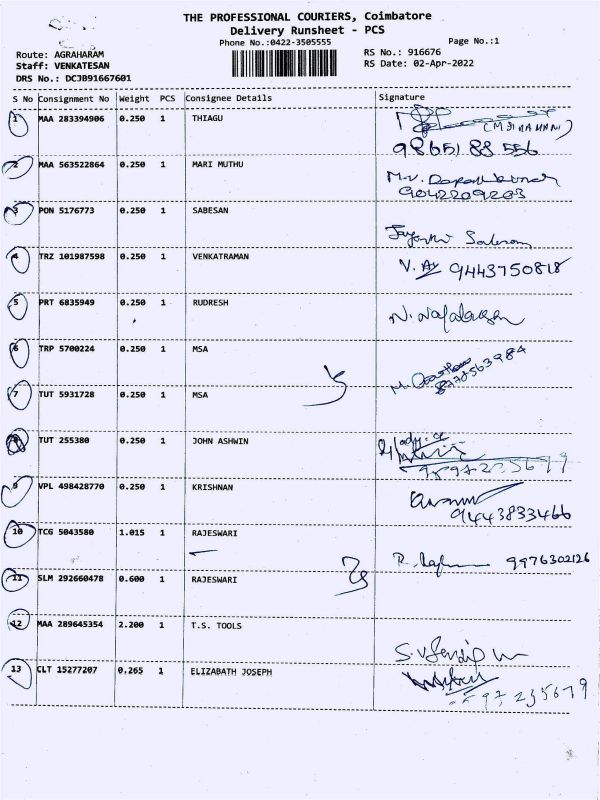 THE PROFESSIONAL COURIERS, Coimbatore
Delivery Runsheet - PCS
Phone No.:0422-3505555
Page No.:1
Route: AGRAHARAM
RS No.: 916676
Staff: VENKATESAN
RS Date: 02-Apr-2022
DRS No.: DCJB91667601
S No Consignment No Weight PCS Consignee Details Signature
1 MAA 283394906 0.250 1 THIAGU
98651 88 556
2 MAA 563522864 0.250 1 MARI MUTHU
9042209203
3 PON 5176773 0.250 1 SABESAN
4 TRZ 101987598 0.250 1 VENKATRAMAN
9443750818
5 PRT 6835949 0.250 1 RUDRESH
6 TRP 5700224 0.250 1 MSA
7 TUT 5931728 0.250 1 MSA
8 TUT 255380 0.250 1 JOHN ASHWIN
9 VPL 498428770 0.250 1 KRISHNAN
9443833466
10 TCG 5043580 1.015 1 RAJESWARI
9976302126
11 SLM 292660478 0.600 1 RAJESWARI
12 MAA 289645354 2.200 1 T.S. TOOLS
13 CLT 15277207 0.265 1 ELIZABATH JOSEPH